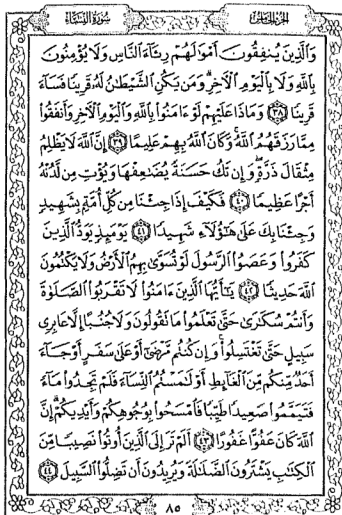 الجزء الخامس سورة النساء
وَٱلَّذِينَ يُنفِقُونَ أَمْوَٰلَهُمْ رِئَآءَ ٱلنَّاسِ وَلَا يُؤْمِنُونَ
بِٱللَّهِ وَلَا بِٱلْيَوْمِ ٱلْءَاخِرِ وَمَن يَكُنِ ٱلشَّيْطَٰنُ لَهُۥ قَرِينًا فَسَآءَ
قَرِينًا ٣٨ وَمَاذَا عَلَيْهِمْ لَوْ ءَامَنُوا۟ بِٱللَّهِ وَٱلْيَوْمِ ٱلْءَاخِرِ وَأَنفَقُوا۟
مِمَّا رَزَقَهُمُ ٱللَّهُ وَكَانَ ٱللَّهُ بِهِمْ عَلِيمًا ٣٩ إِنَّ ٱللَّهَ لَا يَظْلِمُ
مِثْقَالَ ذَرَّةٍ وَإِن تَكُ حَسَنَةً يُضَٰعِفْهَا وَيُؤْتِ مِن لَّدُنْهُ
أَجْرًا عَظِيمًا ٤٠ فَكَيْفَ إِذَا جِئْنَا مِن كُلِّ أُمَّةٍۭ بِشَهِيدٍ
وَجِئْنَا بِكَ عَلَىٰ هَٰٓؤُلَآءِ شَهِيدًا ٤١ يَوْمَئِذٍ يَوَدُّ ٱلَّذِينَ
كَفَرُوا۟ وَعَصَوُا۟ ٱلرَّسُولَ لَوْ تُسَوَّىٰ بِهِمُ ٱلْأَرْضُ وَلَا يَكْتُمُونَ
ٱللَّهَ حَدِيثًا ٤٢ يَٰٓأَيُّهَا ٱلَّذِينَ ءَامَنُوا۟ لَا تَقْرَبُوا۟ ٱلصَّلَوٰةَ
وَأَنتُمْ سُكَٰرَىٰ حَتَّىٰ تَعْلَمُوا۟ مَا تَقُولُونَ وَلَا جُنُبًا إِلَّا عَابِرِى
سَبِيلٍ حَتَّىٰ تَغْتَسِلُوا۟ وَإِن كُنتُم مَّرْضَىٰٓ أَوْ عَلَىٰ سَفَرٍ أَوْ جَآءَ
أَحَدٌ مِّنكُم مِّنَ ٱلْغَآئِطِ أَوْ لَٰمَسْتُمُ ٱلنِّسَآءَ فَلَمْ تَجِدُوا۟ مَآءً
فَتَيَمَّمُوا۟ صَعِيدًا طَيِّبًا فَٱمْسَحُوا۟ بِوُجُوهِكُمْ وَأَيْدِيكُمْ إِنَّ
ٱللَّهَ كَانَ عَفُوًّا غَفُورًا ٤٣ أَلَمْ تَرَ إِلَى ٱلَّذِينَ أُوتُوا۟ نَصِيبًا مِّنَ
ٱلْكِتَٰبِ يَشْتَرُونَ ٱلضَّلَٰلَةَ وَيُرِيدُونَ أَن تَضِلُّوا۟ ٱلسَّبِيلَ ٤٤
٨٥